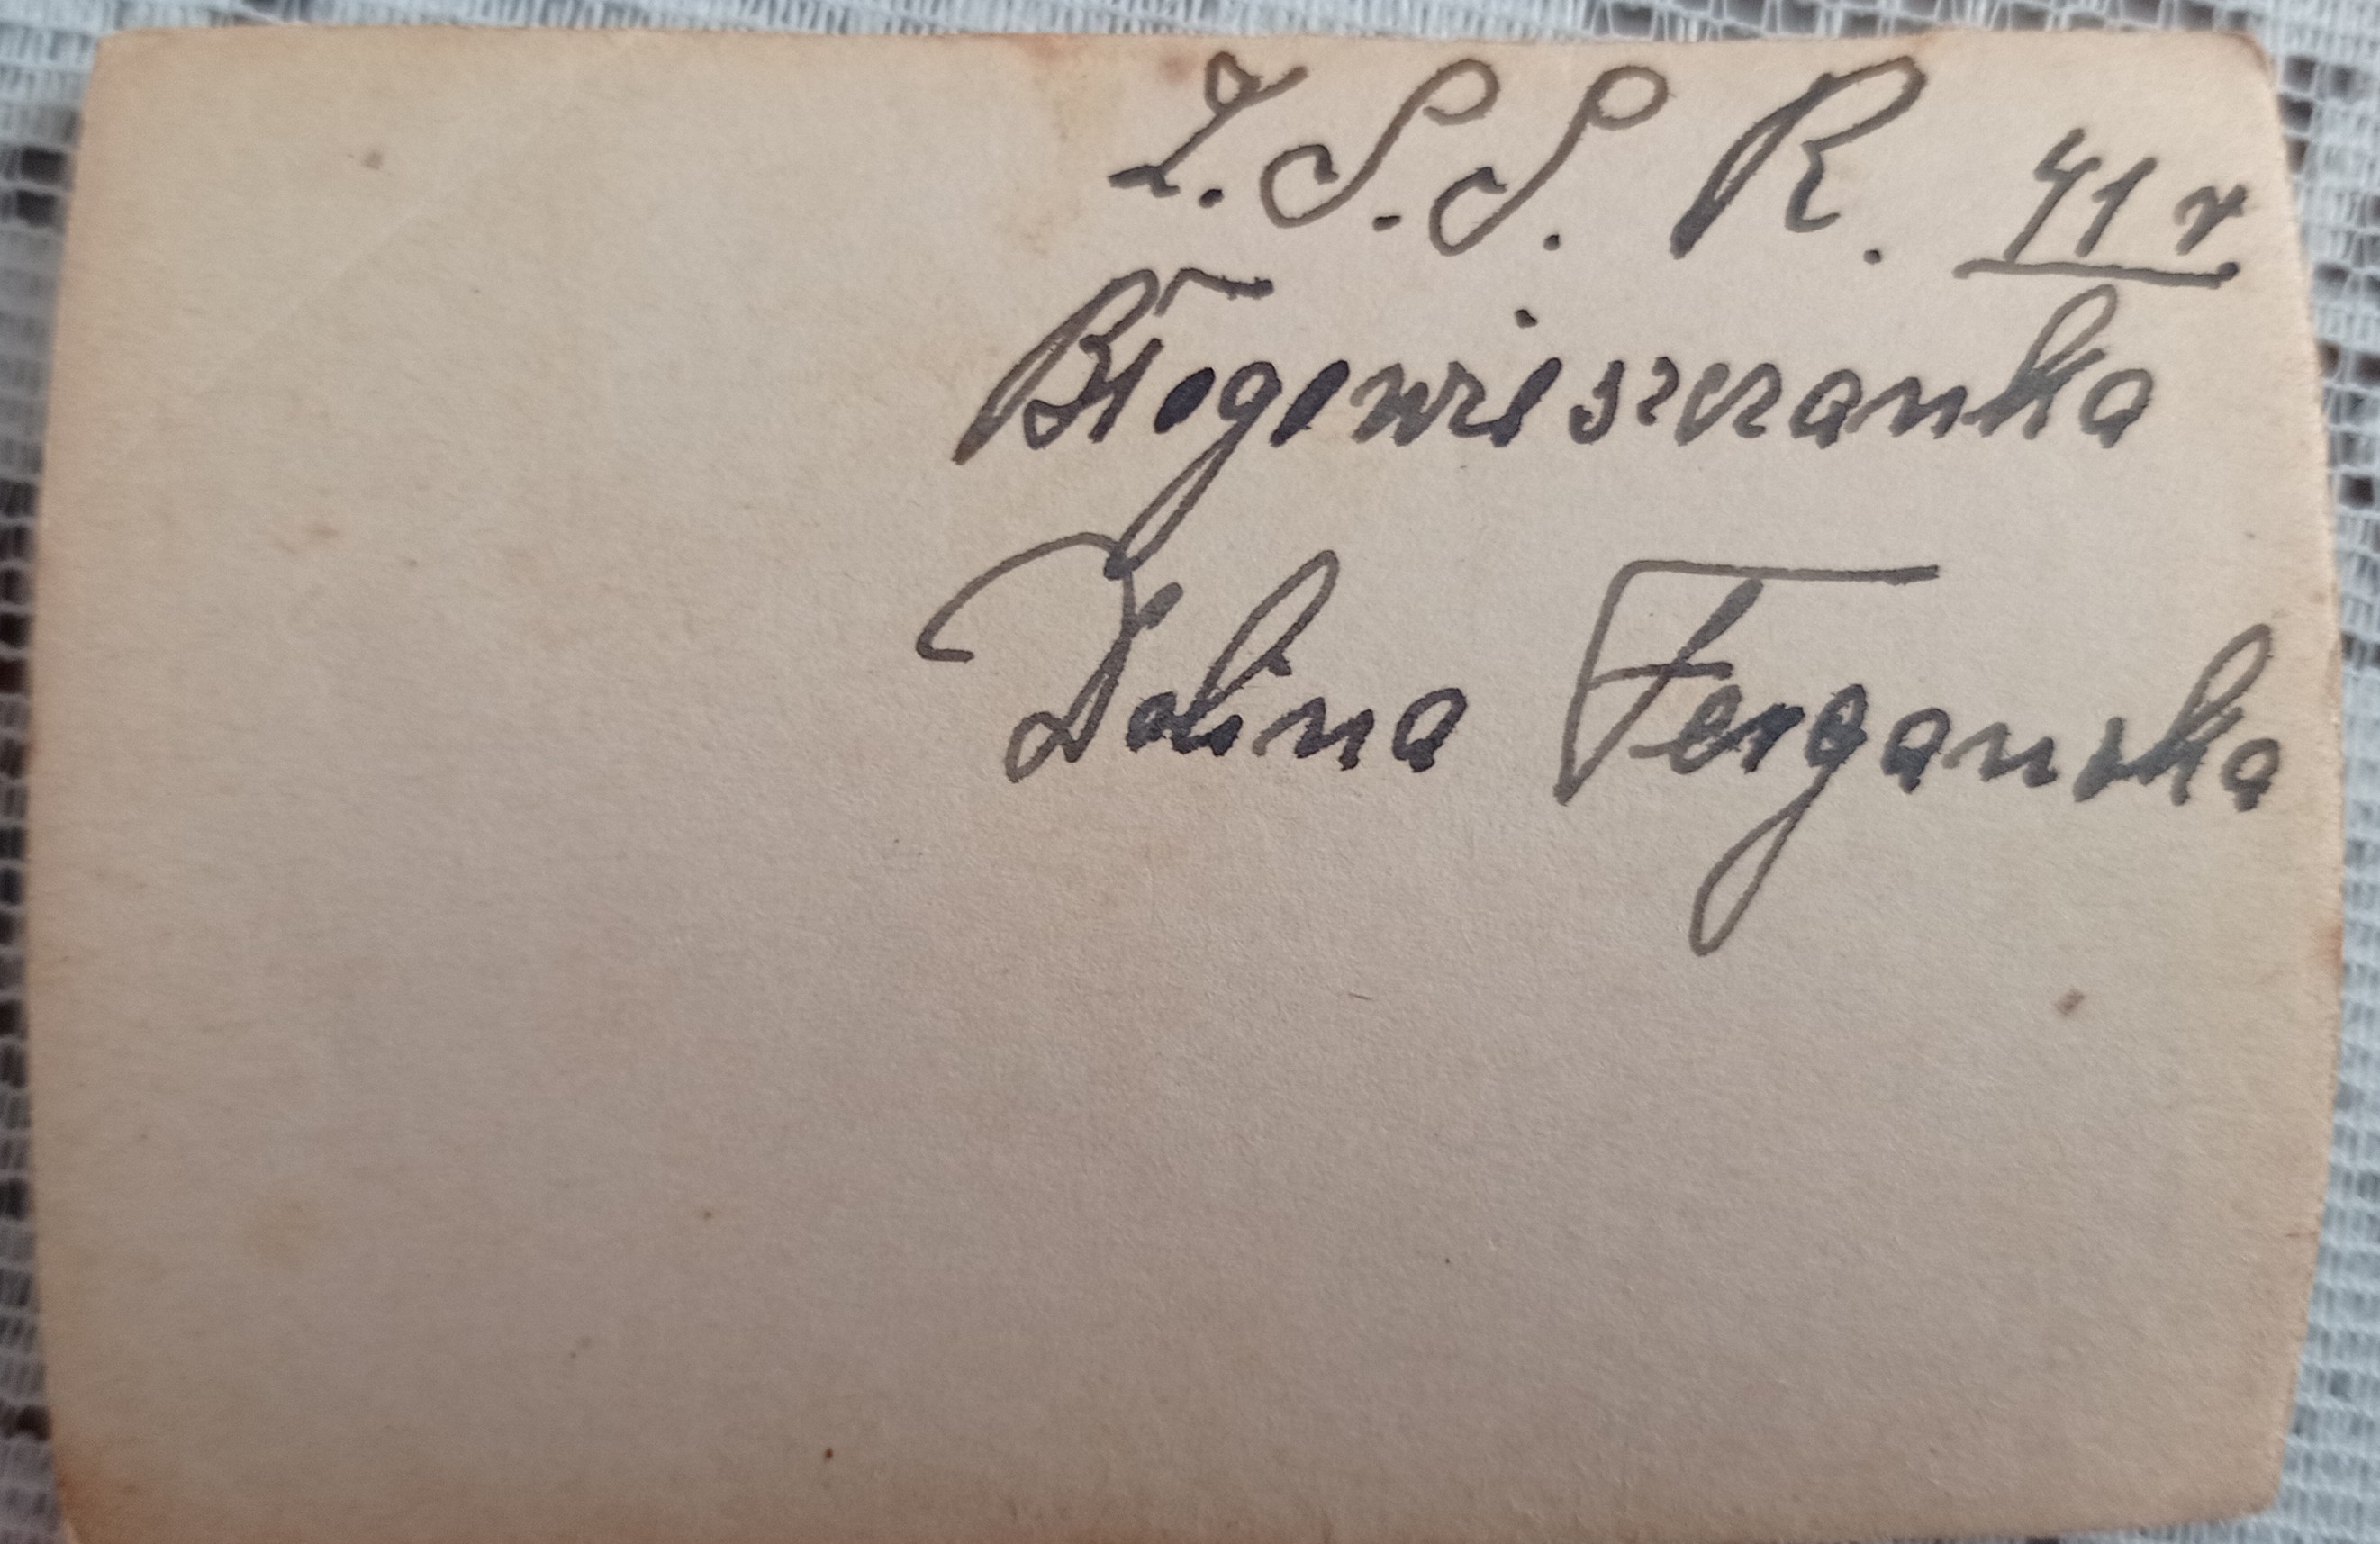 Z.S.S.R. 41 r
Błogowieszczanka
Dolina Ferganska